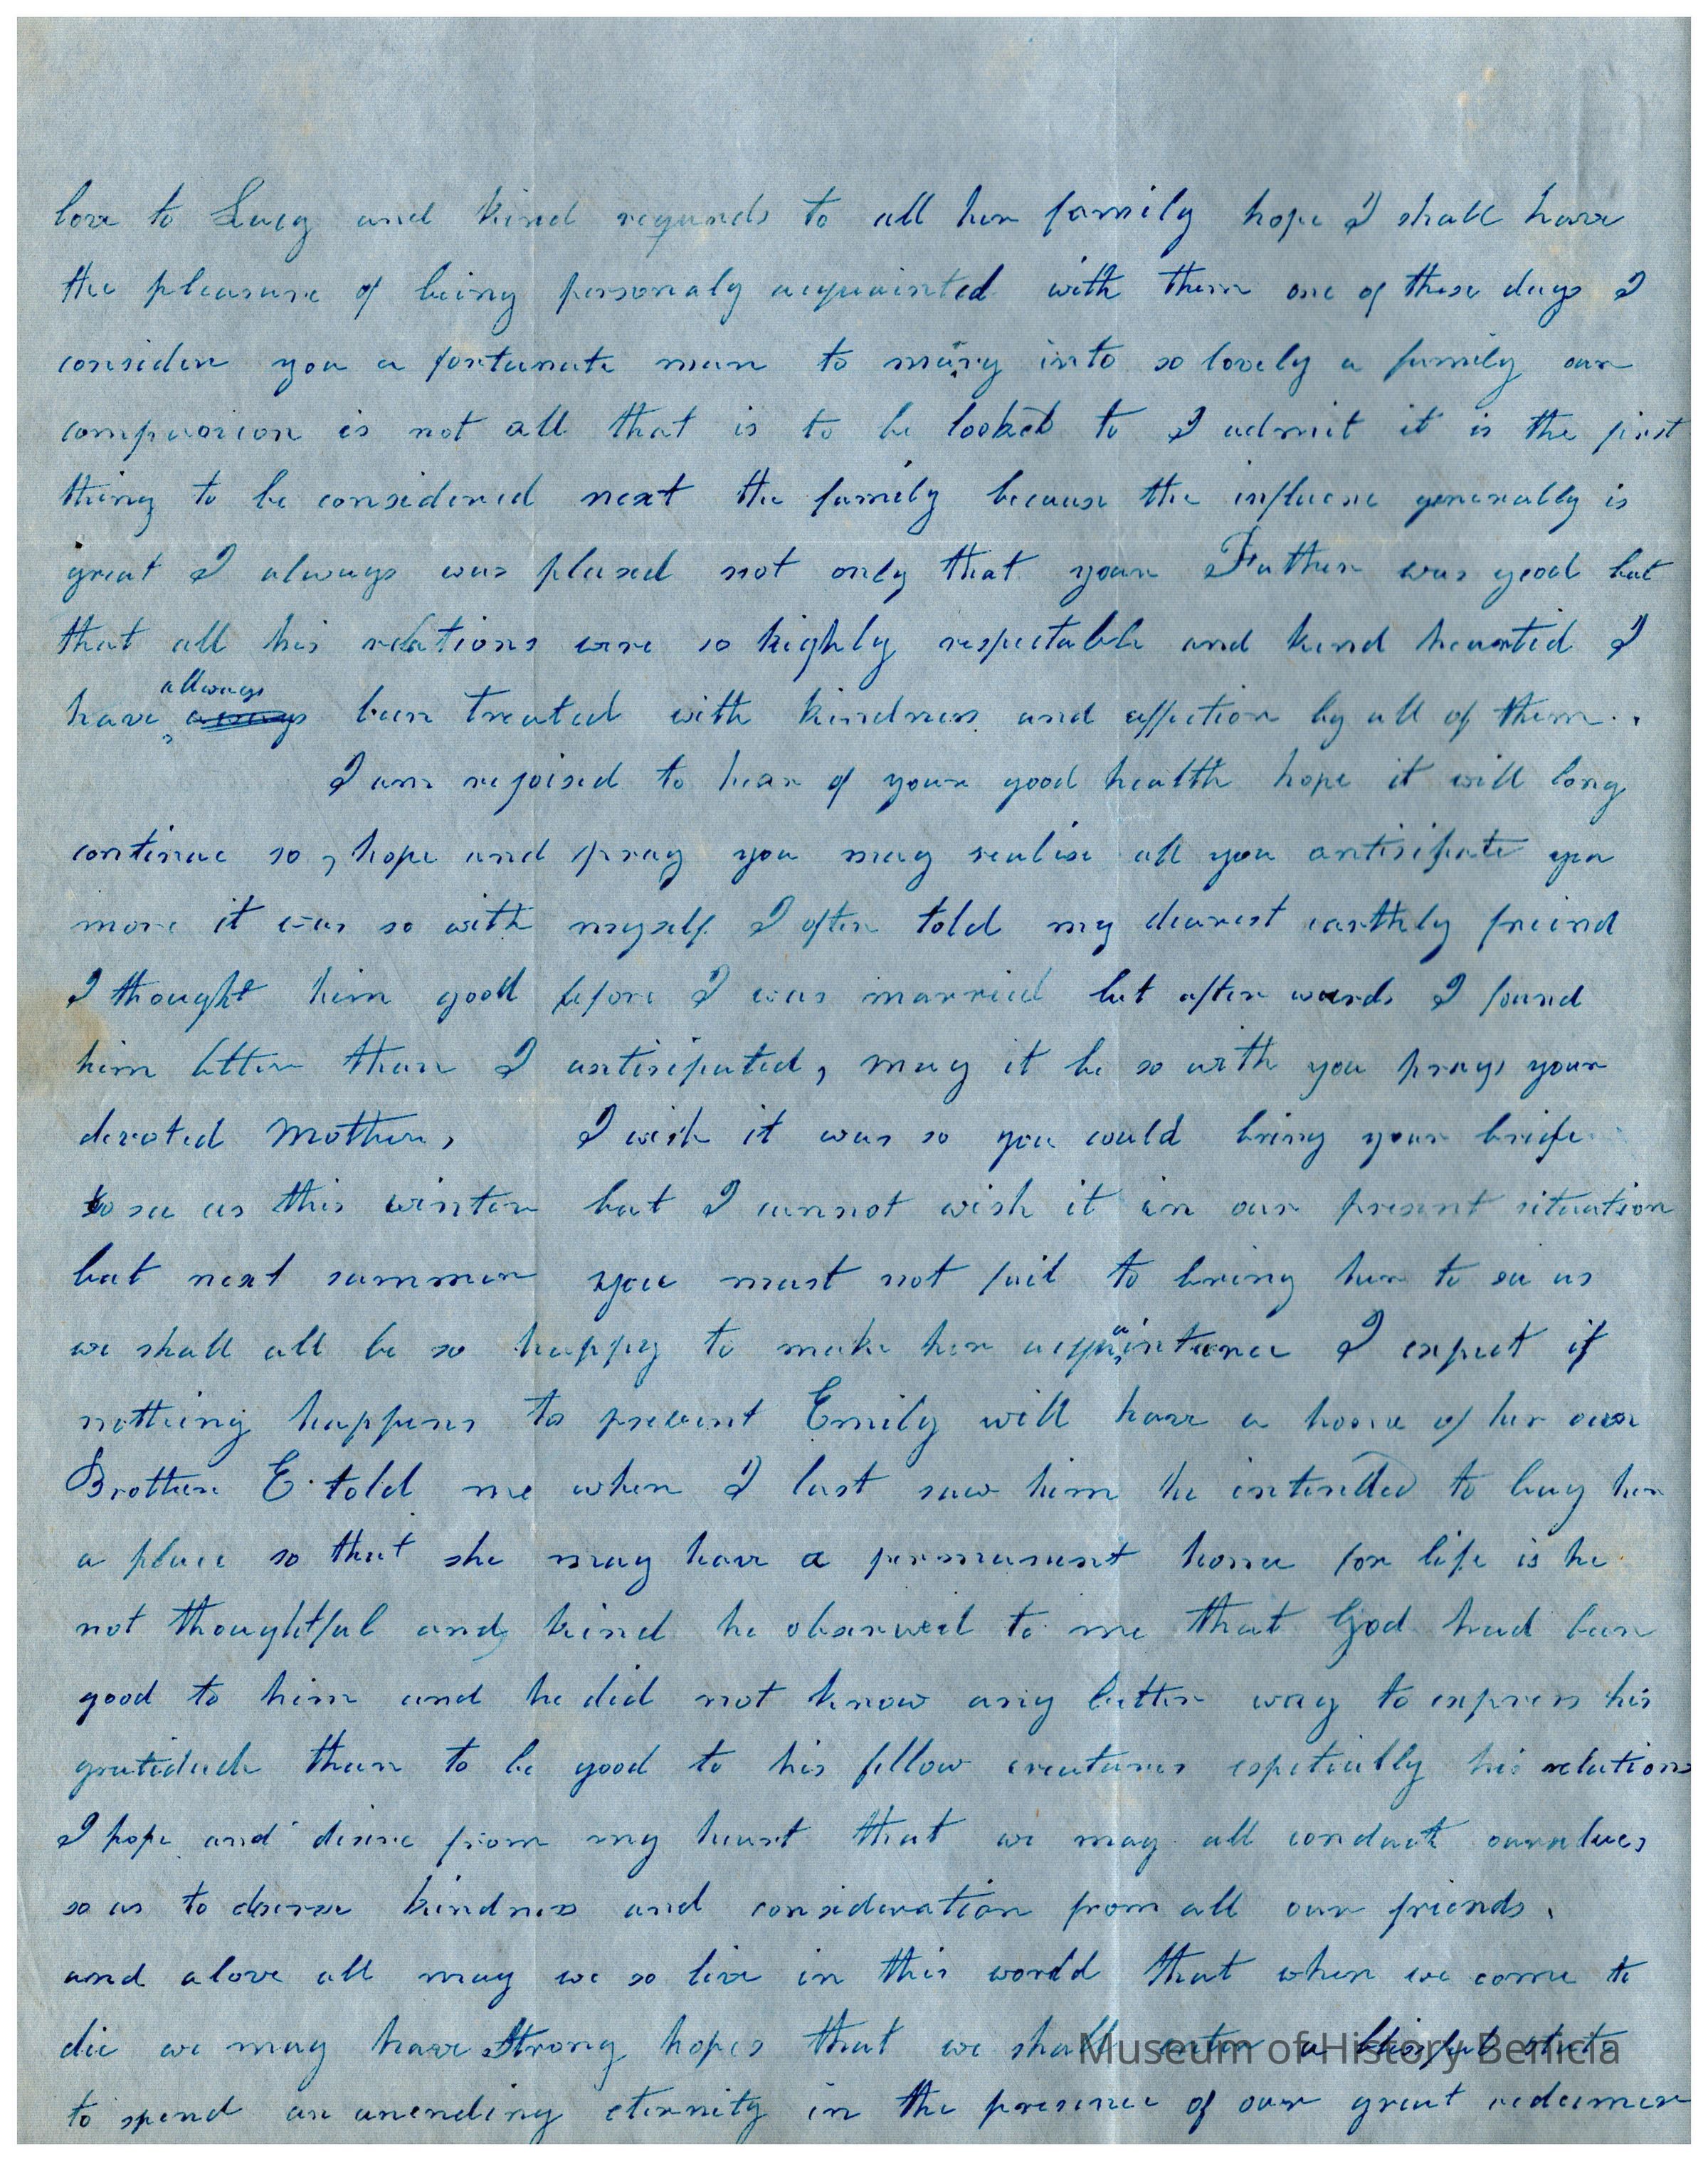 love to Lucy and kind regards to all her family hope I shall have
the pleasure of being personaly acquainted with them one of these days I
consider you a fortunate man to marry into so lovely a family our
companion is not all that is to be looked to I admit it is the first
thing to be considered next the family because the influene generally is
great I always was plesed not only that your Father was good but
that all his relations were so highly respectable and kind hearted I
have allways been treated with kindness and affection by all of them..
I am rejoised to hear of your good health hope it will long
continue so, hope and pray you may realise all you antisipate yea
more it was so with myself I often told my dearest earthly friend
I thought him good before I was married but after wards I found
him better than I antisipated, may it be so with you prays your
devoted Mother, I wish it was so you could bring your bride
to see us this winter but I cannot wish it in our present situation
but next summer you must not fail to bring her to see us
we shall all be so happy to make her acquaintance I expect if
nothing happens to prevent Emily will have a home of her own
Brother E. told me when I last saw him he intended to buy her
a place so that she may have a permanent home for life is he
not thoughtful and kind he observed to me that God had been
good to him and he did not know any better way to express his
gratidude than to be good to his fellow creatures espetially his relations
I hope and desire from my heart that we may all conduct ourselves
so as to deserve kindness and consideration from all our friends.
and above all may we so live in this world that when we come to
die we may have strong hopes that we shall enter a blissful state
to spend an unending eternity in the presence of our great redeemer
Museum of History Benicia